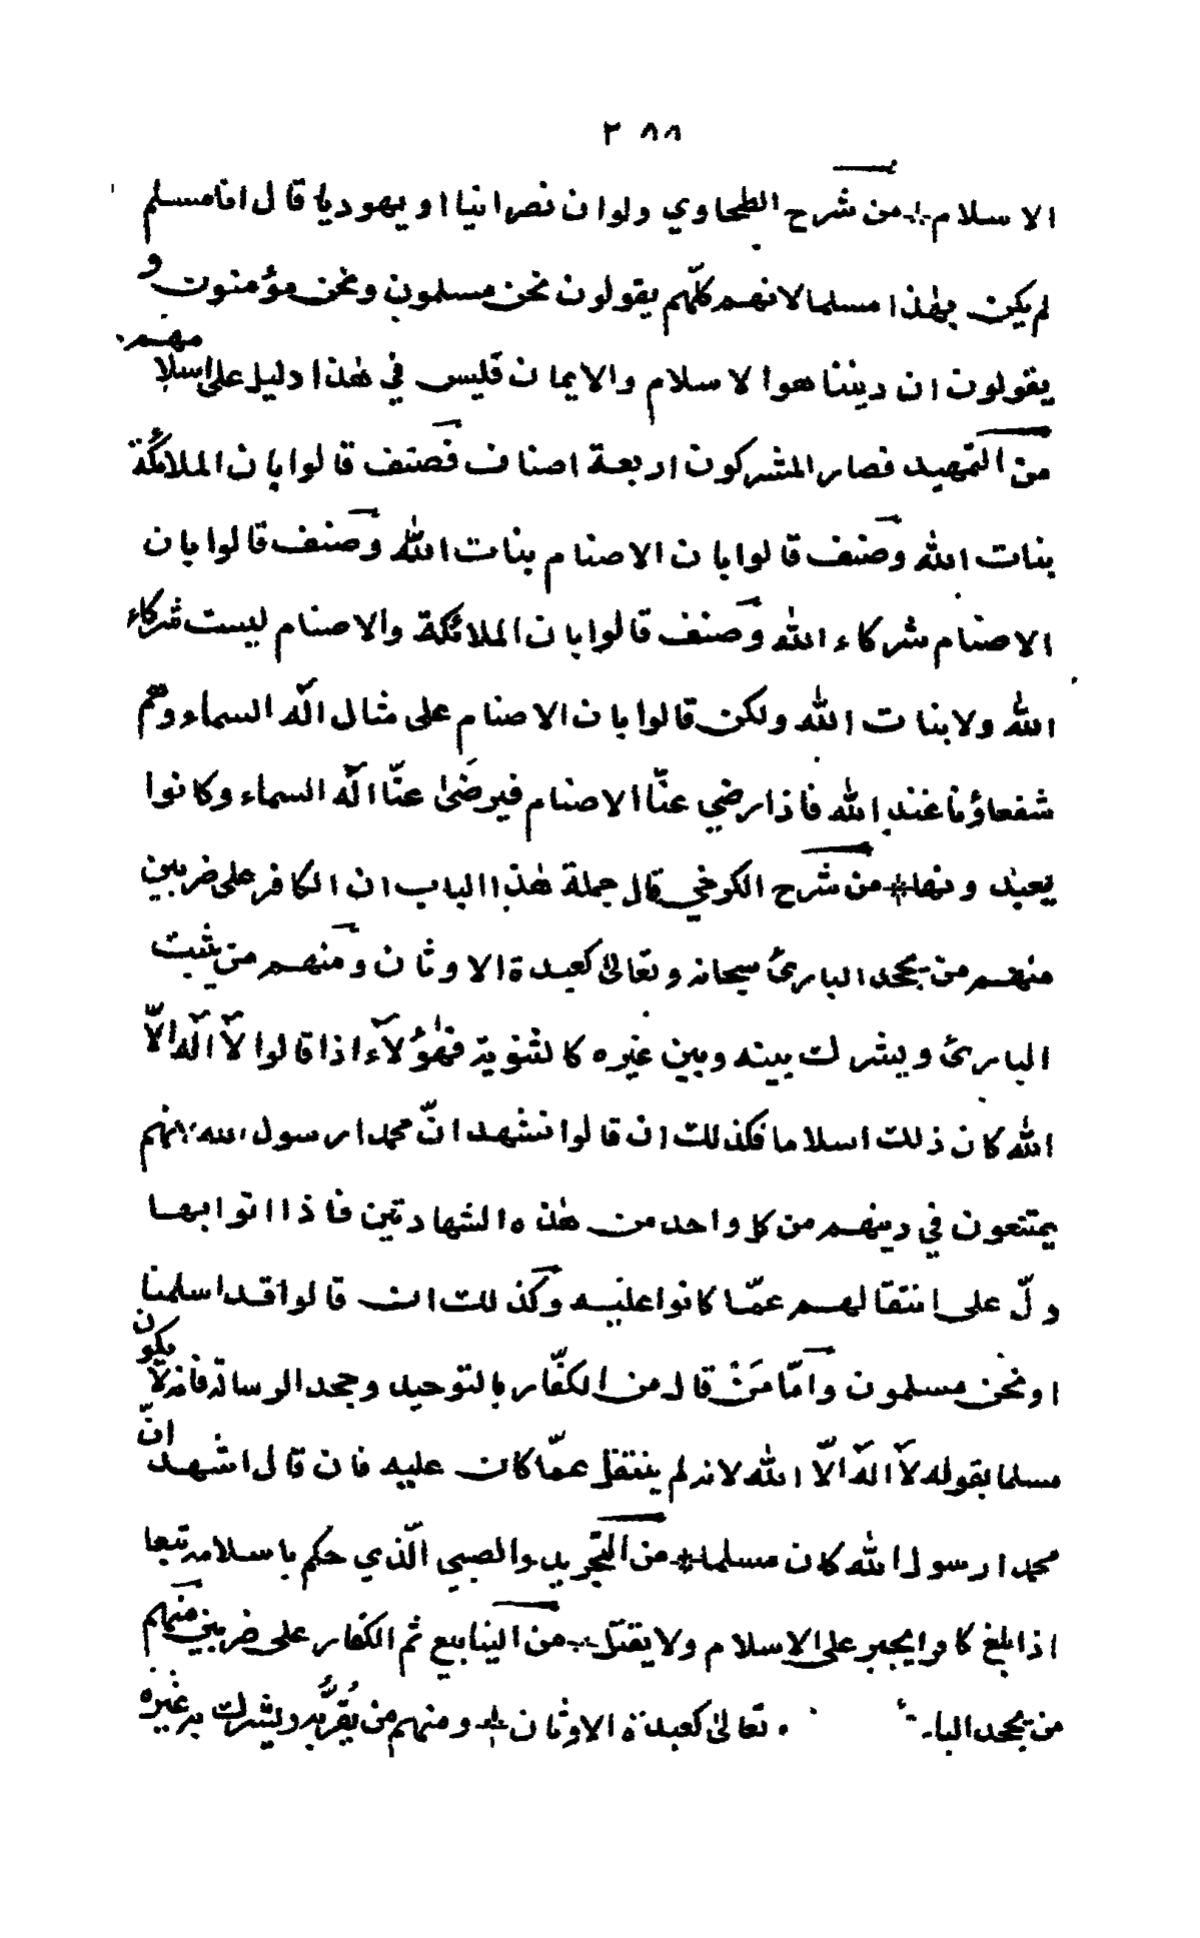 ٢٨٨
الاسلام * من شرح الطحاوي ولو ان نصرانيا او يهوديا قال انا مسلم
لم يكن بهٰذا مسلما لانهم كلّهم يقولون نحن مسلمون ونحن مؤمنون و
يقولون ان ديننا هو الاسلام والايمان فليس في هٰذا دليل على اسلامهم
من التمهيد فصار المشركون اربعة اصناف فصنف قالوا بان الملائكة
بنات الله وصنف قالوا بان الاصنام بنات الله وصنف قالوا بان
الاصنام شركاء الله وصنف قالوا بان الملائكة والاصنام ليست شركاء
الله ولا بنات الله ولكن قالوا بان الاصنام على مثال آلٰه السماء وهم
شفعاؤنا عند الله فاذا رضي عنّا الاصنام فيرضىٰ عنّا آلٰه السماء وكانوا
يعبدونها * من شرح الكرخي قال جملة هٰذا الباب ان الكافر على ضربين
منهم من يجحد البارئ سبحانه وتعالىٰ كعبدة الاوثان ومنهم من يثبت
البارئ ويشرك بينه وبين غيره كالثنوية فهٰؤلآء اذا قالوا لآ الٰه الّا
الله كان ذلك اسلاما فكذلك ان قالوا نشهد انّ محمدا رسول الله لانهم
يمتنعون في دينهم من كل واحد من هٰذه الشهادتين فاذا اتوا بها
دلّ على انتقالهم عمّا كانوا عليه وكذلك ان قالوا قد اسلمنا
او نحن مسلمون وامّا مَنْ قال من الكفّار بالتوحيد وجحد الرسالة فانه لا يكون
مسلما بقوله لآ الٰه الّا الله لانه لم ينتقل عمّا كان عليه فان قال اشهد انّ
محمدا رسول الله كان مسلما * من التجريد والصبي الّذي حكم باسلامه تبعا
اذا بلغ كافرا يجبر على الاسلام ولا يقتل * من الينابيع ثم الكفار على ضربين منهم
من يجحد تعالىٰ كعبدة الاوثان * ومنهم من يُقرُّ به ويشرك به غيره